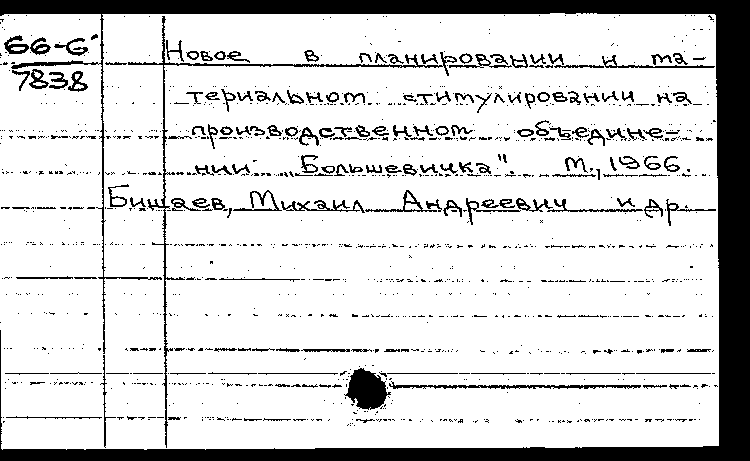 66-6
7838
Новое в планировании и ма-
териальном стимулировании на
производственном объедине-
нии „Большевичка". М., 1966.
Бишаев, Михаил Андреевич и др.